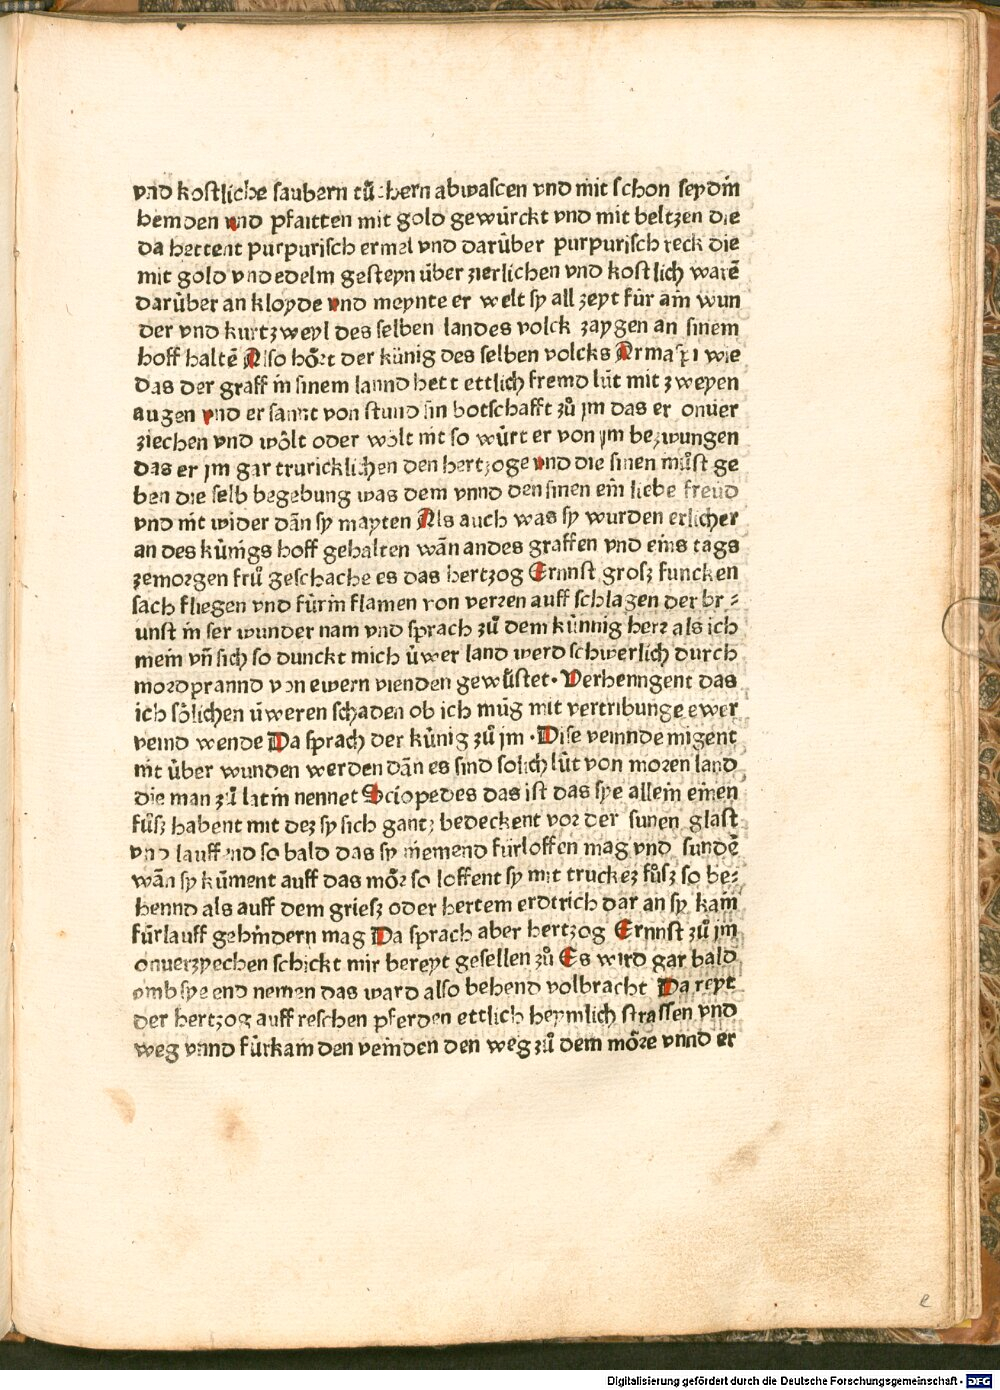 vnd kostliche saubern tuͤchern abwascen vnd mit schon seydin
hemden vnd pfaitten mit gold gewürckt vnd mit beltzen die
da hettent purpurisch ermel vnd darüber purpurisch reck die
mit gold vnd edelm gesteyn über zierlichen vnd kostlich warē
darüber an kloyde vnd meynte er welt sy all zeyt für ain wun
der vnd kurtzweyl des selben landes volck zaygen an sinem
hoff haltē Also hoͤrt der künig des selben volcks Armaspi wie
das der graff in sinem lannd hett ettlich fremd lüt mit zweyen
augen vnd er sannt von stund sin botschafft zuͦ jm das er onuer
ziechen vnd woͤlt oder wolt nit so würt er von jm bezwungen
das er jm gar truricklichen den hertzoge vnd die sinen muͤst ge
ben die selb begebung was dem vnnd den sinen ein liebe freud
vnd nit wider dān sy mayten Als auch was sy wurden erlicher
an des künigs hoff gehalten wān an des graffen vnd eins tags
zemorgen fruͤ geschache es das hertzog Ernnst grosz funcken
sach fliegen vnd fürin flamen von verren auff schlagen der br⸗
unst in ser wunder nam vnd sprach zuͦ dem künnig herr als ich
mein vn̄ sich so dunckt mich üwer land werd schwerlich durch
mordprannd von ewern vienden gewuͤstet· Verhenngent das
ich soͤlichen üweren schaden ob ich müg mit vertribunge ewer
veind wende Da sprach der künig zuͦ jm · Dise veinnde migent
nit über wunden werden dān es sind solich lüt von moren land
die man zuͦ latin nennet Sciopedes das ist das sye allein einen
fuͦsz habent mit dez sy sich gantz bedeckent vor der sunen glast
vnd lauffend so bald das sy niemend fürloffen mag vnd sundē
wān sy küment auff das moͤr so loffent sy mit truckez fuͦsz so be⸗
hennd als auff dem griesz oder hertem erdtrich dar an sy kain
fürlauff gehindern mag Da sprach aber hertzog Ernnst zuͦ jm
onuerzyechen schickt mir bereyt gesellen zuͦ Es wird gar bald
omb sye end nemen das ward also behend volbracht Da reyt
der hertzog auff reschen pferden ettlich heymlich strassen vnd
weg vnnd fürkam den veinden den weg zuͦ dem moͤre vnnd er
e
Digitalisierung gefördert durch die Deutsche Forschungsgemeinschaft · DFG